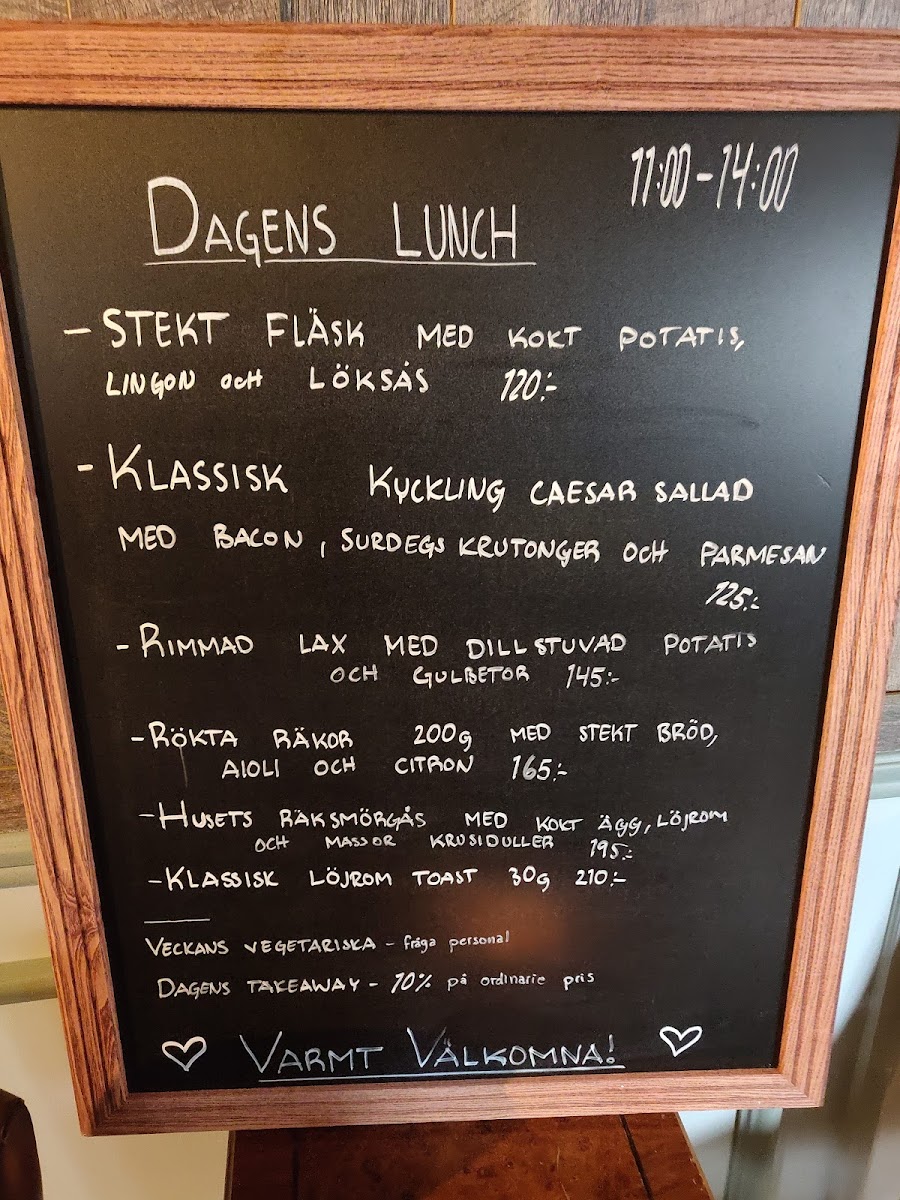 11:00-14:00
DAGENS LUNCH
- STEKT FLÄSK MED KOKT POTATIS,
LINGON OCH LÖKSÅS 120:-
- KLASSISK KYCKLING CAESAR SALLAD
MED BACON, SURDEGS KRUTONGER OCH PARMESAN
125:-
- RIMMAD LAX MED DILLSTUVAD POTATIS
OCH GULBETOR 145:-
- RÖKTA RÄKOR 200g MED STEKT BRÖD,
AIOLI OCH CITRON 165:-
- HUSETS RÄKSMÖRGÅS MED KOKT ÄGG, LÖJROM
OCH MASSOR KRUSIDULLER 195:-
- KLASSISK LÖJROM TOAST 30g 210:-
VECKANS VEGETARISKA - fråga personal
DAGENS TAKEAWAY - 10% på ordinarie pris
♡ VARMT VÄLKOMNA! ♡